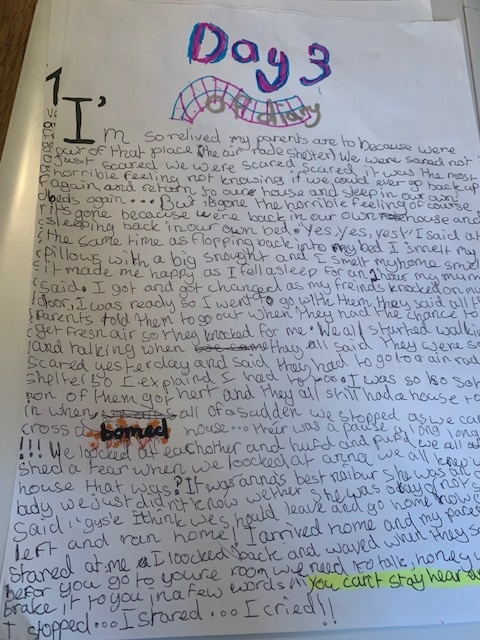 Day 3
of diary
1
I'm so relived my parents are to because were
out of that place (the air rade shelter) We were scared not
just scared we were scared scared, it was the most
horrible feeling not knowing if we could ever go back up
again and return to oure house and sleep in our own
beds again... But its gone the horrible feeling of course
its gone because were back in our own house and
sleeping back in our own bed. Yes, yes, yes! I said at
the same time as flopping back into my bed I smelt my
pillows with a big snought and I smelt my home smell
it made me happy as I fell asleep for an 1 hour my mum
said. I got and got changed as my freinds knocked on my
door, I was ready so I went to go with them they said all th
parents told them to go out when they had the chance to
get fresh air so they knocked for me. We all started walkin
and talking when they all said they were so
scared yesterday and said they had to go to a air rad
shelter so I explaind I had to I was so so so h
non of them got hert and they all still had a house to
in when all of a sudden we stopped as we cam
cross a bomed house... ther was a pause a long long
!!! We loocked at eachother and hufd and pufd we all
shed a tear when we loocked at anna we all knew w
house that was? It was anna's best neibur she was
lady we just didn't know wether she was okay or not
said "gys'e I think we should leave and go home now
left and ran home! I arrived home and my parents
stared at me I loocked back and waved what they s
befor you go to youre room we need to talk, honey
brake it to you in a few words" you can't stay hear
I stopped... I stared... I cried!!